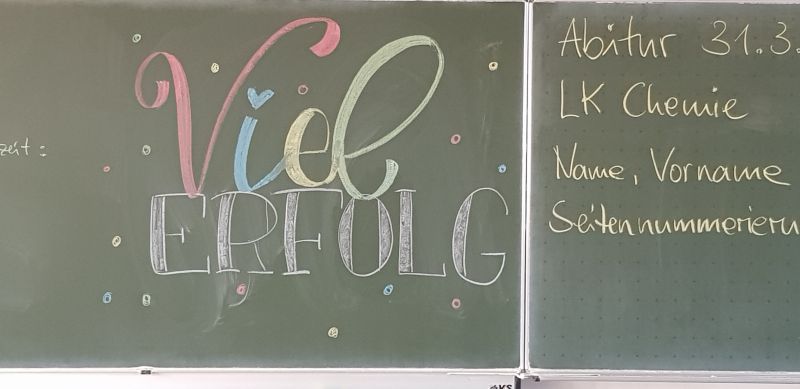 zeit:
Viel
ERFOLG
Abitur 31.3.
LK Chemie
Name, Vorname
Seitennummerieru